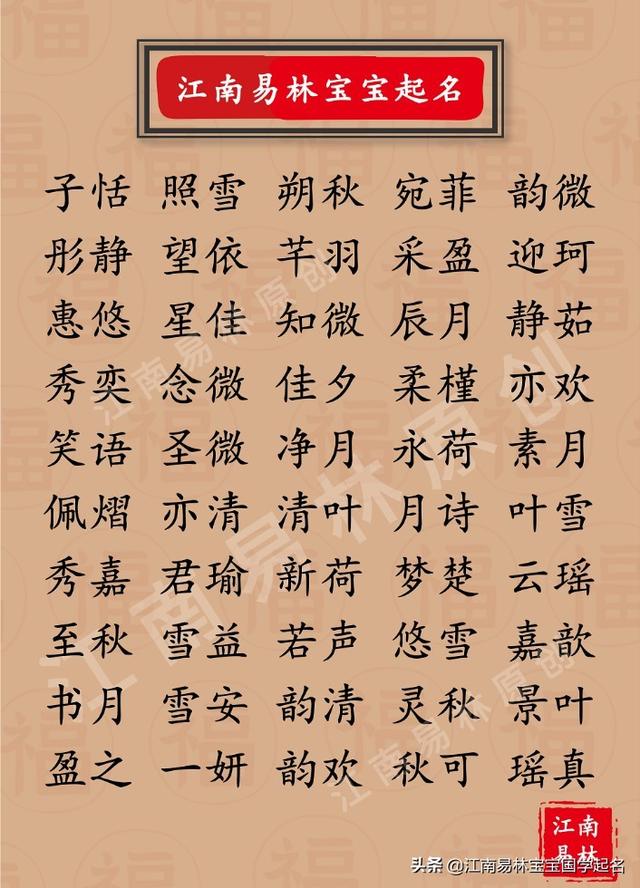 江南易林宝宝起名
子恬 照雪 朔秋 宛菲 韵微
彤静 望依 芊羽 采盈 迎珂
惠悠 星佳 知微 辰月 静茹
秀奕 念微 佳夕 柔槿 亦欢
笑语 圣微 净月 永荷 素月
佩熠 亦清 清叶 月诗 叶雪
秀嘉 君瑜 新荷 梦楚 云瑶
至秋 雪益 若声 悠雪 嘉歆
书月 雪安 韵清 灵秋 景叶
盈之 一妍 韵欢 秋可 瑶真
江南易林原创
江南易林原创
江南易林原创
江南
易林
头条 @江南易林宝宝国学起名